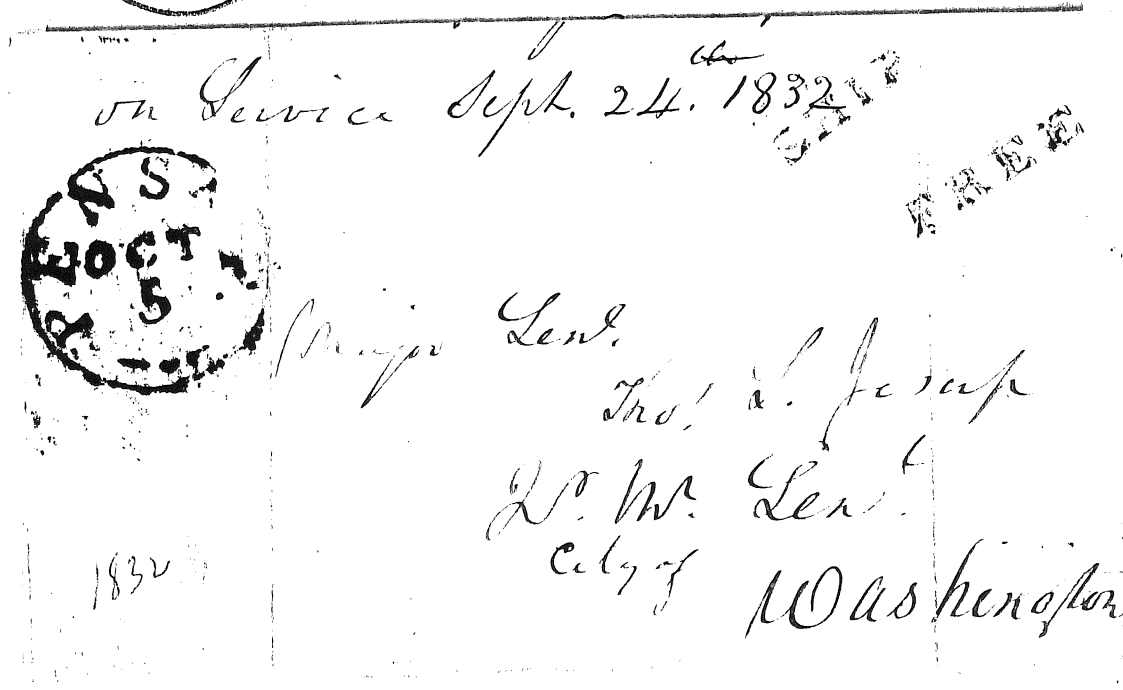 on Service Sept. 24. 1832
SHIP
FREE
PENS
OCT
5
Major Genl.
Tho! S. Jesup
Qr. Mr. Genl.
City of
Washington
1832